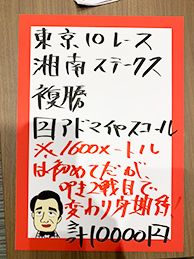 東京10レース
湘南ステークス
複勝
2アドマイヤスコール
※1600メートル
は初めてだが、
叩き2戦目で、
変わり身期待!
計10000円